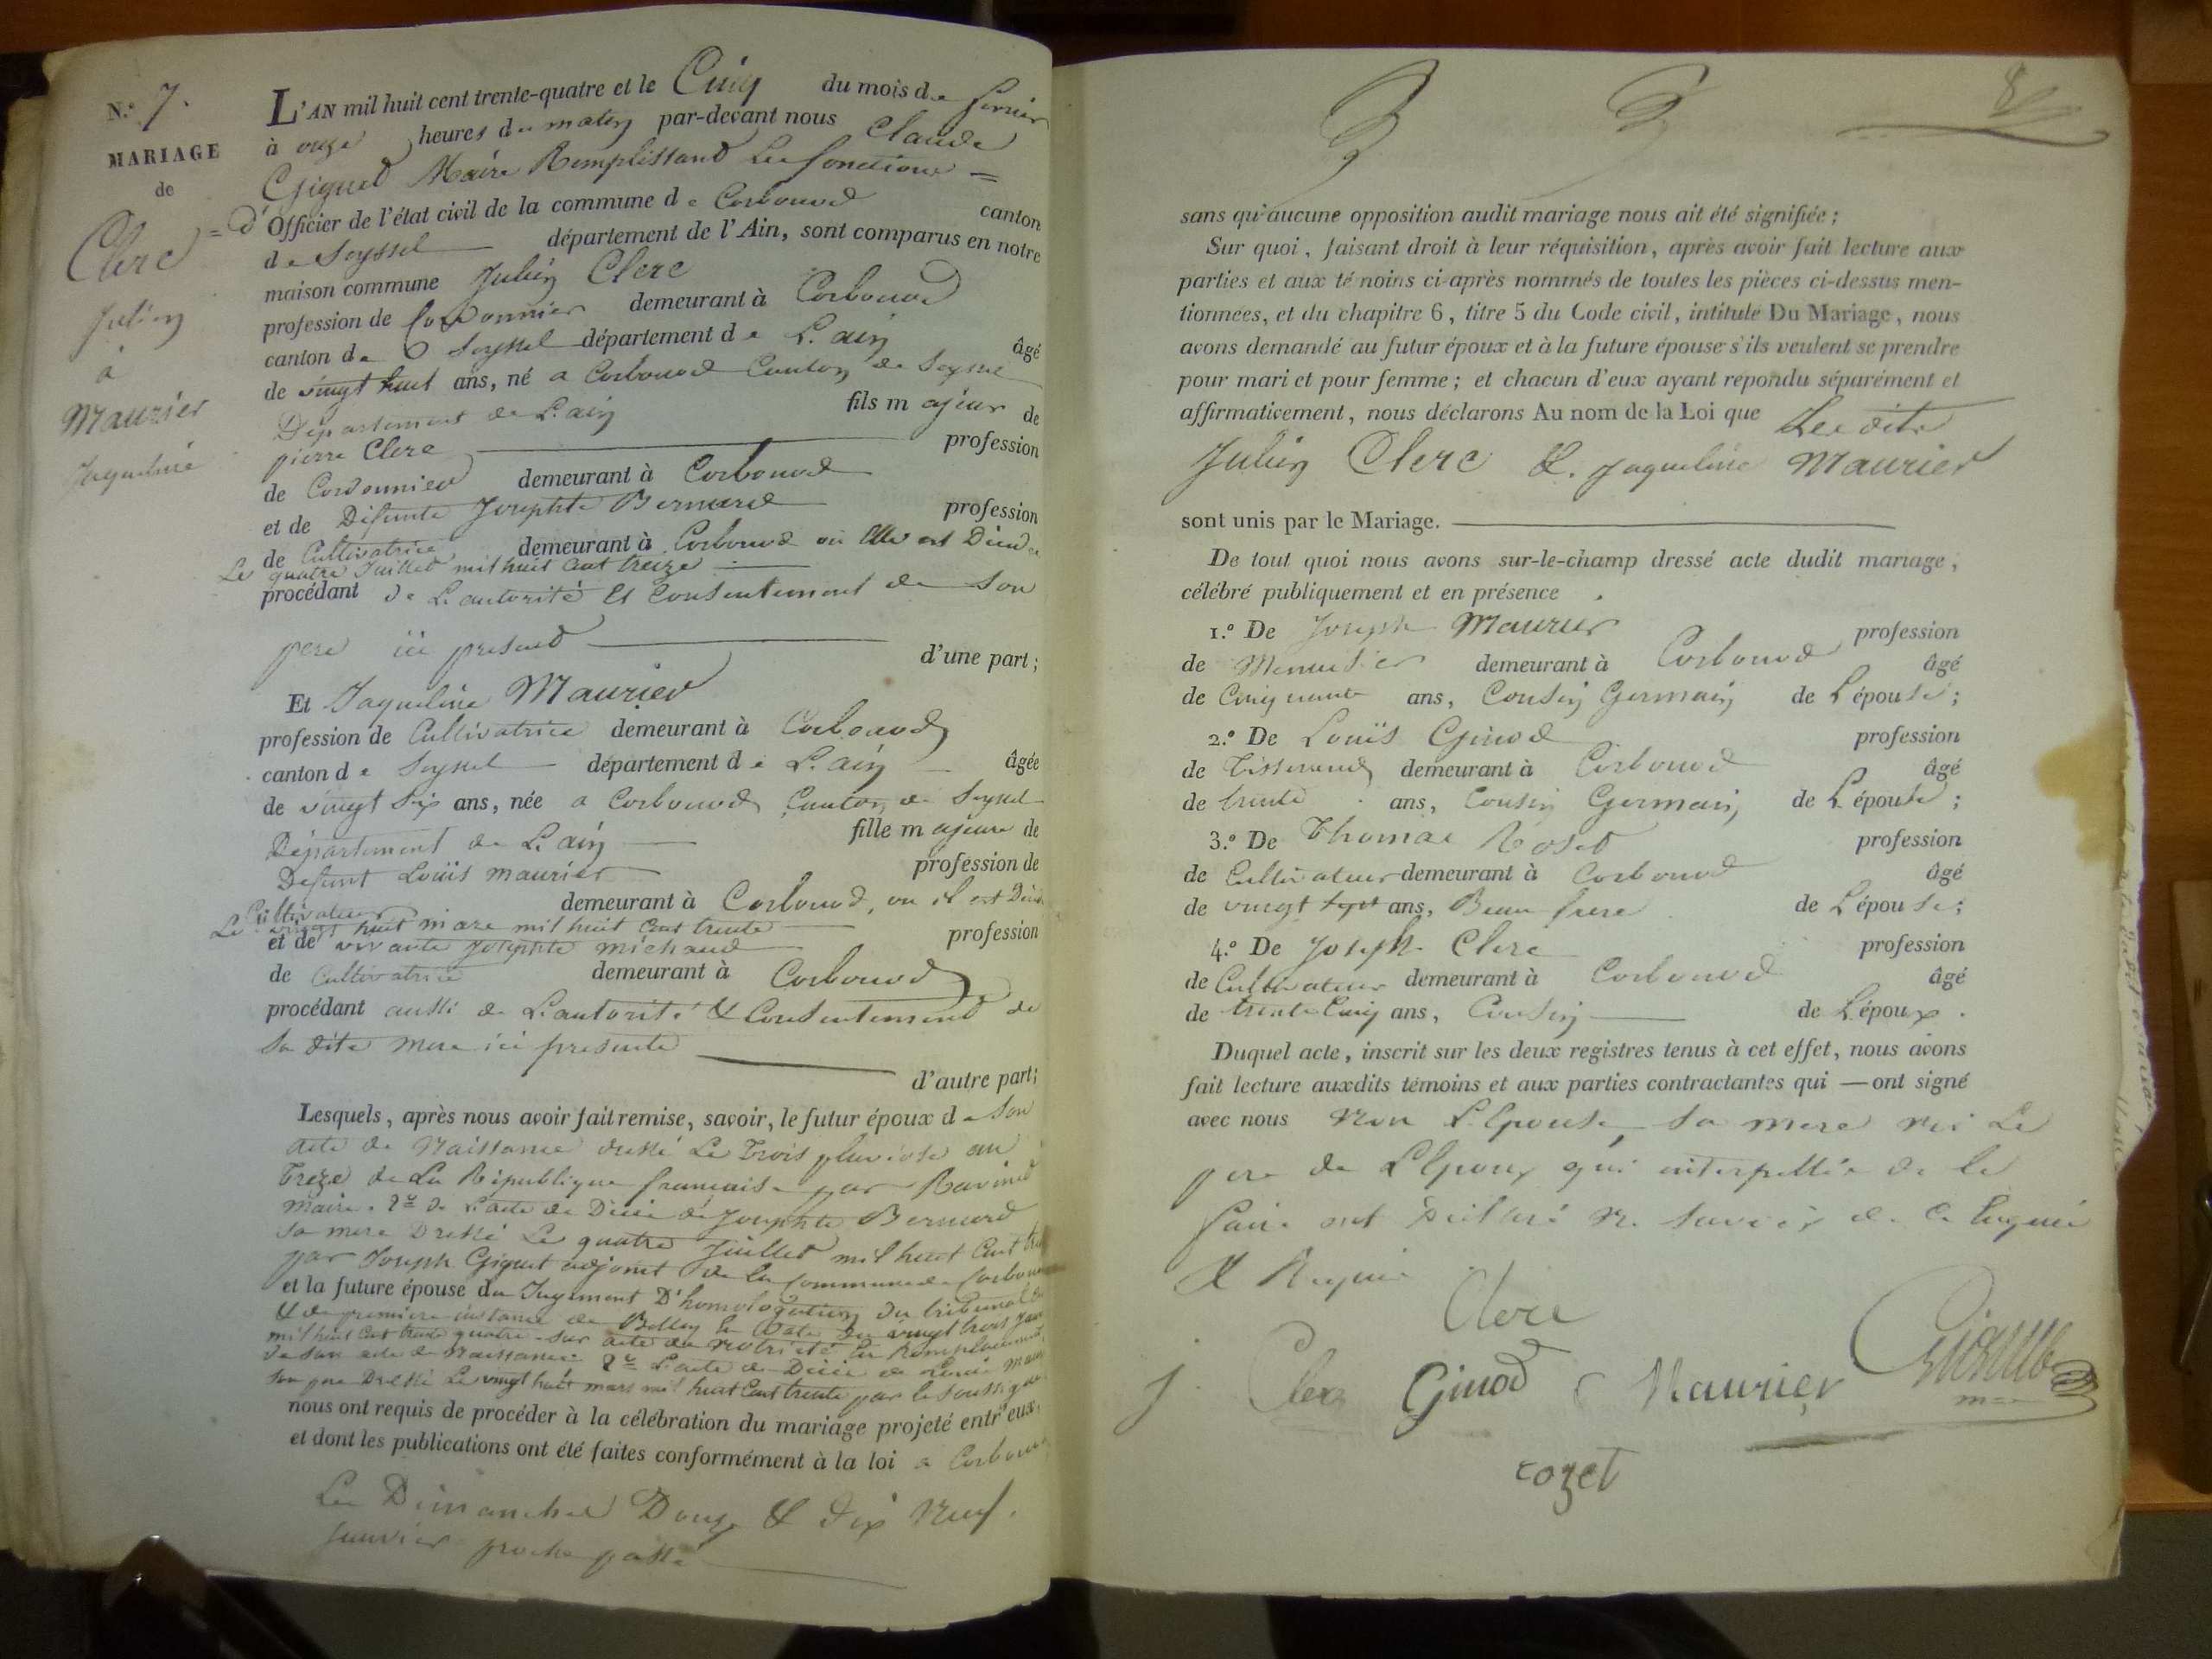 N.º 7.
MARIAGE
de
Clerc
Julien
à
Maurier
Jaqueline
L'AN mil huit cent trente-quatre et le Cinq du mois de fevrier
à onze heures du matin par-devant nous Claude
Giguet Maire Remplissand Les fonctions =
= d' Officier de l'état civil de la commune de Corbonod canton
de Seyssel département de l'Ain, sont comparus en notre
maison commune Julien Clerc
profession de Cordonnier demeurant à Corbonod
canton de Seyssel département de L'ain âgé
de vingt huit ans, né a Corbonod Canton de Seyssel
Département de L'ain fils majeur de
pierre Clerc profession
de Cordonnier demeurant à Corbonod
et de Défunte Josephte Bernard profession
de Cultivatrice demeurant à Corbonod où Elle est Décédée
Le quatre Juillet mil huit cent treize
procédant de L'autorité Et Consentement de Son
pere ici présend d'une part;
Et Jaqueline Maurier
profession de Cultivatrice demeurant à Corbonod
canton de Seyssel département de L'ain âgée
de vingt Six ans, née a Corbonod Canton de Seyssel
Département de L'ain fille majeure de
Defunt Louïs maurier profession de
Cultivateur demeurant à Corbonod, ou il est Décédé
Le vingt huit mars mil huit Cent trente
et de vivante Josephte michaud profession
de Cultivatrice demeurant à Corbonod
procédant aussi de L'autorité & Consentement de
Sa dite mere ici presente
d'autre part;
Lesquels, après nous avoir fait remise, savoir, le futur époux de Son
acte de Naissance dressé Le Trois pluviose an
Treze de La République française par Ravinet
maire. 2º De L'acte de Décé de Josephte Bernard
Sa mere Dressé Le quatre Juillet mil huit Cent
par Joseph Giguet adjoint de la Commune de Corbonod
et la future épouse du Jugement D'homologation Du tribunal
& de premiere instance de Belley En Date Du vingt trois
mil huit Cent trente quatre sur acte de Notriété En Remplacement
de Son acte de Naissance. 2º L'acte de Décé de Louis
Son pere Dressé Le vingt huit mars mil huit Cent trente par le Soussigné
nous ont requis de procéder à la célébration du mariage projeté entr'eux,
et dont les publications ont été faites conformément à la loi a Corbonod
Les Dimanches Douze & Dix Neuf
Janvier proche passé
8
sans qu'aucune opposition audit mariage nous ait été signifiée;
Sur quoi, faisant droit à leur réquisition, après avoir fait lecture aux
parties et aux témoins ci-après nommés de toutes les pièces ci-dessus men-
tionnées, et du chapitre 6, titre 5 du Code civil, intitulé Du Mariage, nous
avons demandé au futur époux et à la future épouse s'ils veulent se prendre
pour mari et pour femme; et chacun d'eux ayant repondu séparément et
affirmativement, nous déclarons Au nom de la Loi que Les dits
Julien Clerc & Jaqueline Maurier
sont unis par le Mariage.
De tout quoi nous avons sur-le-champ dressé acte dudit mariage,
célébré publiquement et en présence
1.º De Joseph Maurier profession
de Menuisier demeurant à Corbonod âgé
de Cinquante ans, Cousin Germain de L'épouse;
2.º De Louïs Ginod profession
de Tisserand demeurant à Corbonod âgé
de trente ans, Cousin Germain de L'épouse;
3.º De Thomas Roset profession
de Cultivateur demeurant à Corbonod âgé
de vingt Sept ans, Beau frere de L'épouse;
4.º De Joseph Clerc profession
de Cultivateur demeurant à Corbonod âgé
de trente Cinq ans, Cousin de L'époux.
Duquel acte, inscrit sur les deux registres tenus à cet effet, nous avons
fait lecture auxdits témoins et aux parties contractantes qui — ont signé
avec nous Non L'Epouse, Sa mere ni Le
pere de L'Epoux qui interpellés de le
faire ont Déclaré Ne Savoir de ce Enquis
& Requis
Clerc
j Clerc Ginod Maurier Giguet
maire
rozet